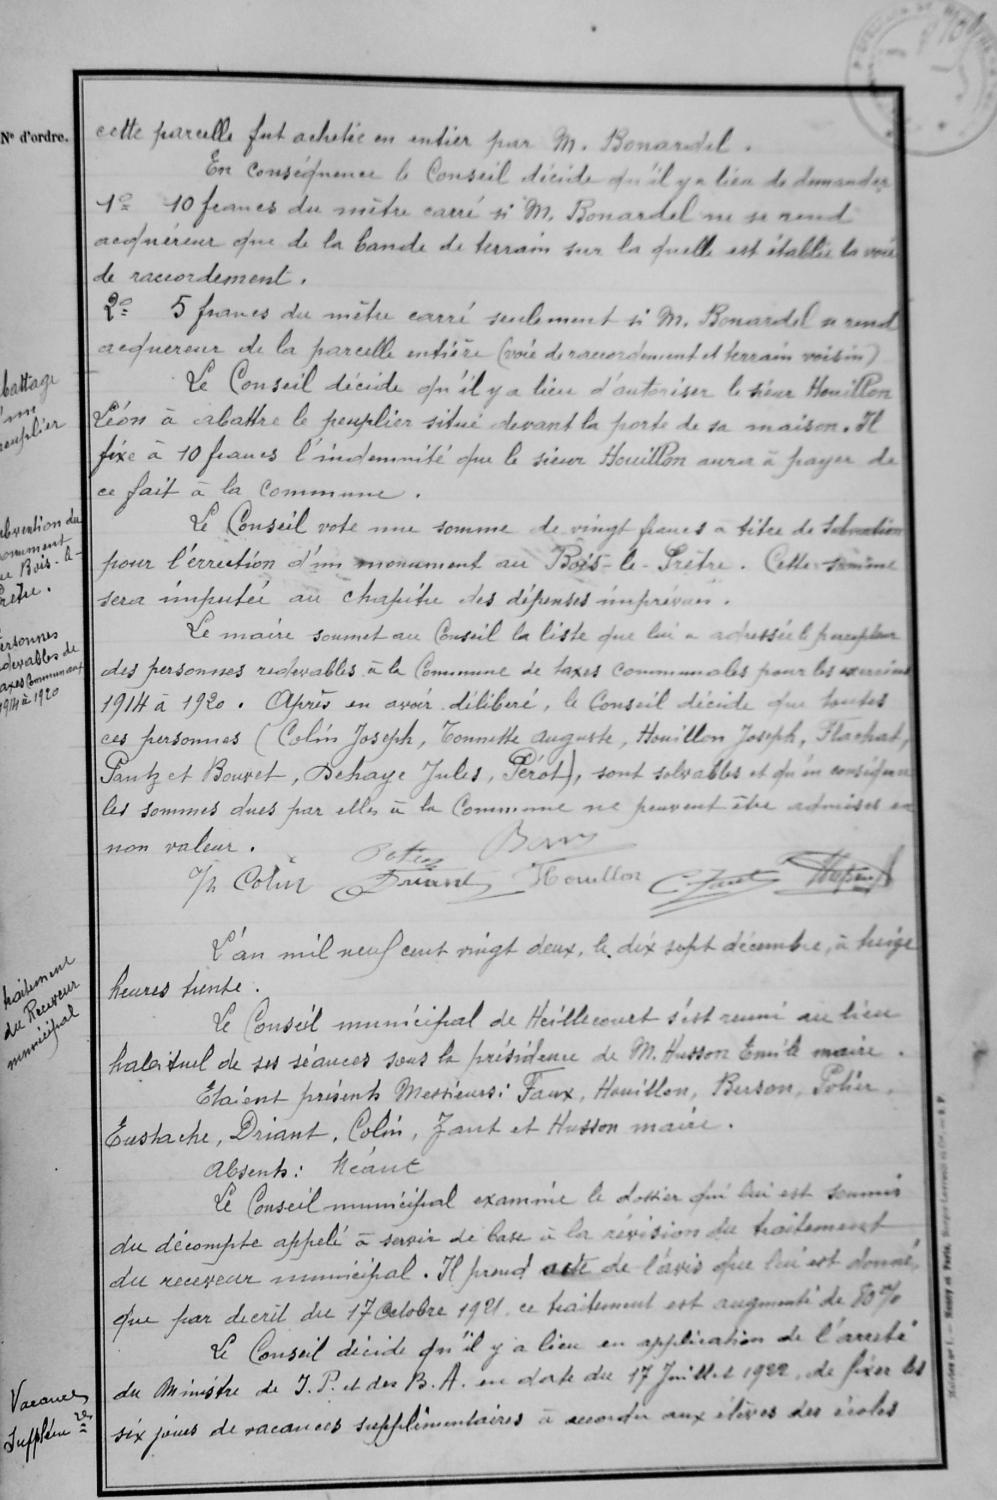 Nº d'ordre.
cette parcelle fut achetée en entier par M. Bonardel.
En conséquence le Conseil décide qu'il y a lieu de demander
1º 10 francs du mètre carré si M. Bonardel ne se rend
acquéreur que de la bande de terrain sur la quelle est établie la voie
de raccordement.
2º 5 francs du mètre carré seulement si M. Bonardel se rend
acquereur de la parcelle entière (voie de raccordement et terrain voisin)
battage
d'un
peuplier
Le Conseil décide qu'il y a lieu d'autoriser le sieur Houillon
Léon à abattre le peuplier situé devant la porte de sa maison. Il
fixe à 10 francs l'indemnité que le sieur Houillon aura à payer de
ce fait à la commune.
ubvention du
monument
au Bois-le-
Prêtre.
Le Conseil vote une somme de vingt francs à titre de subvention
pour l'érrection d'un monument au Bois-le-Prêtre. Cette somme
sera imputée au chapitre des dépenses imprévues.
ersonnes
edevables de
axes Communaux
1914 à 1920
Le maire soumet au Conseil la liste que lui a adressée le percepteur
des personnes redevables à la Commune de taxes communales pour les exercices
1914 à 1920. Après en avoir délibéré, le Conseil décide que toutes
ces personnes (Colin Joseph, Tonnette Auguste, Houillon Joseph, Flachat,
Pantz et Bouvet, Dehaye Jules, Pérot), sont solvables et qu'en conséquence
les sommes dues par elles à la Commune ne peuvent être admises en
non valeur.
Colin Driant Houillon
L'an mil neuf cent vingt deux, le dix sept décembre, à treize
heures trente.
traitement
du Receveur
municipal
Le Conseil municipal de Heillecourt s'est réuni au lieu
habituel de ses séances sous la présidence de M. Husson Emile maire.
Etaient présents Messieurs: Faux, Houillon, Berson, Potier,
Eustache, Driant, Colin, Zant et Husson maire.
Absents: Néant
Le Conseil municipal examine le dossier qui lui est soumis
du décompte appelé à servir de base à la révision du traitement
du receveur municipal. Il prend acte de l'avis que lui est donné,
que par decrêt du 17 Octobre 1921 ce traitement est augmenté de 80%
Vacances
Supplém res
Le Conseil décide qu'il y a lieu en application de l'arreté
du Ministre de I. P. et des B. A. en date du 17 Juillet 1922, de fixer les
six jours de vacances supplémentaires à accorder aux élèves des écoles